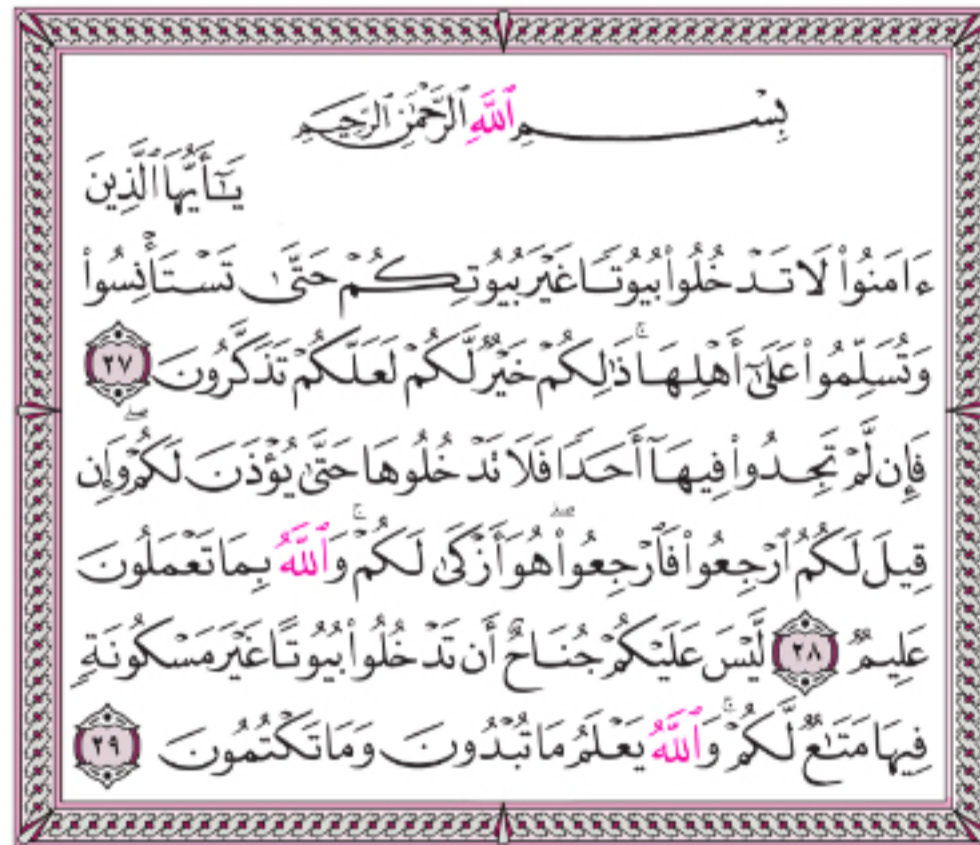 بِسْمِ ٱللَّهِ ٱلرَّحْمَٰنِ ٱلرَّحِيمِ
يَٰٓأَيُّهَا ٱلَّذِينَ
ءَامَنُوا۟ لَا تَدْخُلُوا۟ بُيُوتًا غَيْرَ بُيُوتِكُمْ حَتَّىٰ تَسْتَأْنِسُوا۟
وَتُسَلِّمُوا۟ عَلَىٰٓ أَهْلِهَا ۚ ذَٰلِكُمْ خَيْرٌ لَّكُمْ لَعَلَّكُمْ تَذَكَّرُونَ ٢٧
فَإِن لَّمْ تَجِدُوا۟ فِيهَآ أَحَدًا فَلَا تَدْخُلُوهَا حَتَّىٰ يُؤْذَنَ لَكُمْ ۖ وَإِن
قِيلَ لَكُمُ ٱرْجِعُوا۟ فَٱرْجِعُوا۟ ۖ هُوَ أَزْكَىٰ لَكُمْ ۚ وَٱللَّهُ بِمَا تَعْمَلُونَ
عَلِيمٌ ٢٨ لَّيْسَ عَلَيْكُمْ جُنَاحٌ أَن تَدْخُلُوا۟ بُيُوتًا غَيْرَ مَسْكُونَةٍ
فِيهَا مَتَٰعٌ لَّكُمْ ۚ وَٱللَّهُ يَعْلَمُ مَا تُبْدُونَ وَمَا تَكْتُمُونَ ٢٩